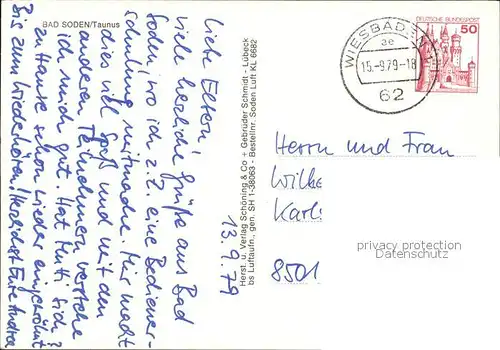 BAD SODEN/Taunus
13.9.79
Liebe Eltern!
Viele herzliche Grüße aus Bad
Soden, wo ich z.Z. eine Bediener-
schulung mitmache. Mir macht
die viel Spaß und mit den
anderen Teilnehmern verstehe
ich mich gut. Hat Mutti sich
zu Hause schon wieder eingewöhnt?
Bis zum Wiederhören! Herzlichst Eure Andrea
Herst. u. Verlag Schöning & Co + Gebrüder Schmidt - Lübeck
bs Luftaufn., gen. SH 1-38063 - Bestellnr. Soden Luft KL 6682
WIESBADEN
ae
15.-9.79-18
62
DEUTSCHE BUNDESPOST
50
Herrn und Frau
Wilhe
Karl
8501
privacy protection
Datenschutz